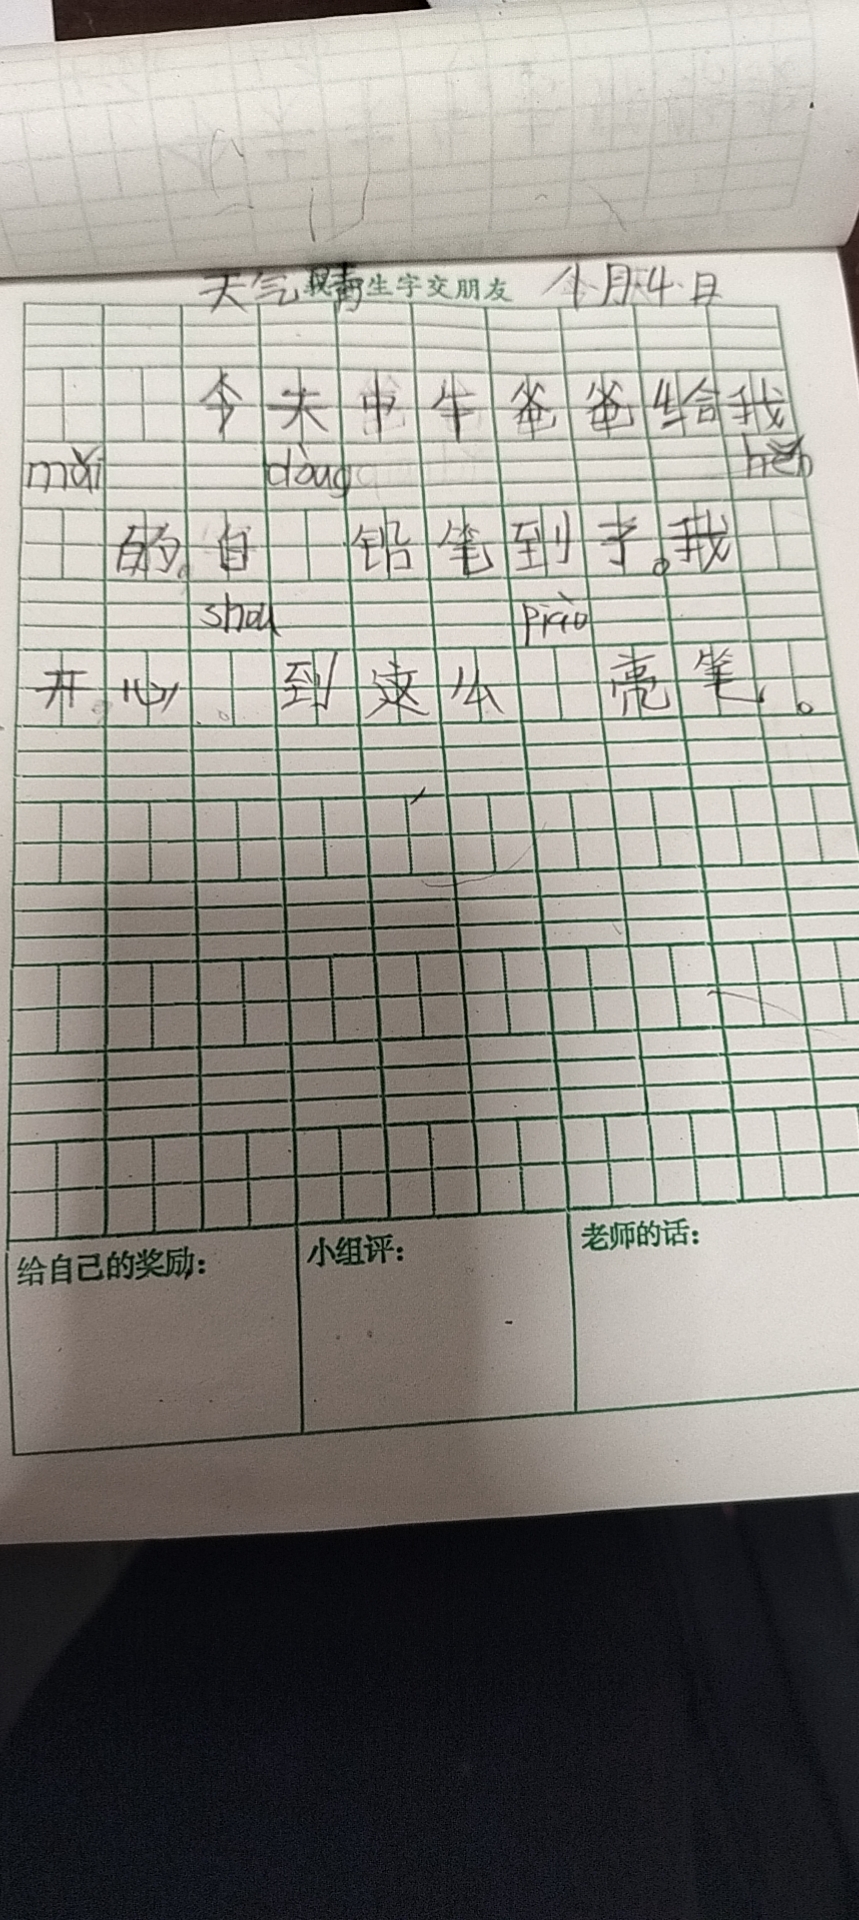 天气晴 生字交朋友 月4日
今天中午爸爸给我
mǎi dòng hěn
的自 铅笔到了。我
shou piào
开心。 到这么 亮笔。
给自己的奖励: 小组评: 老师的话: